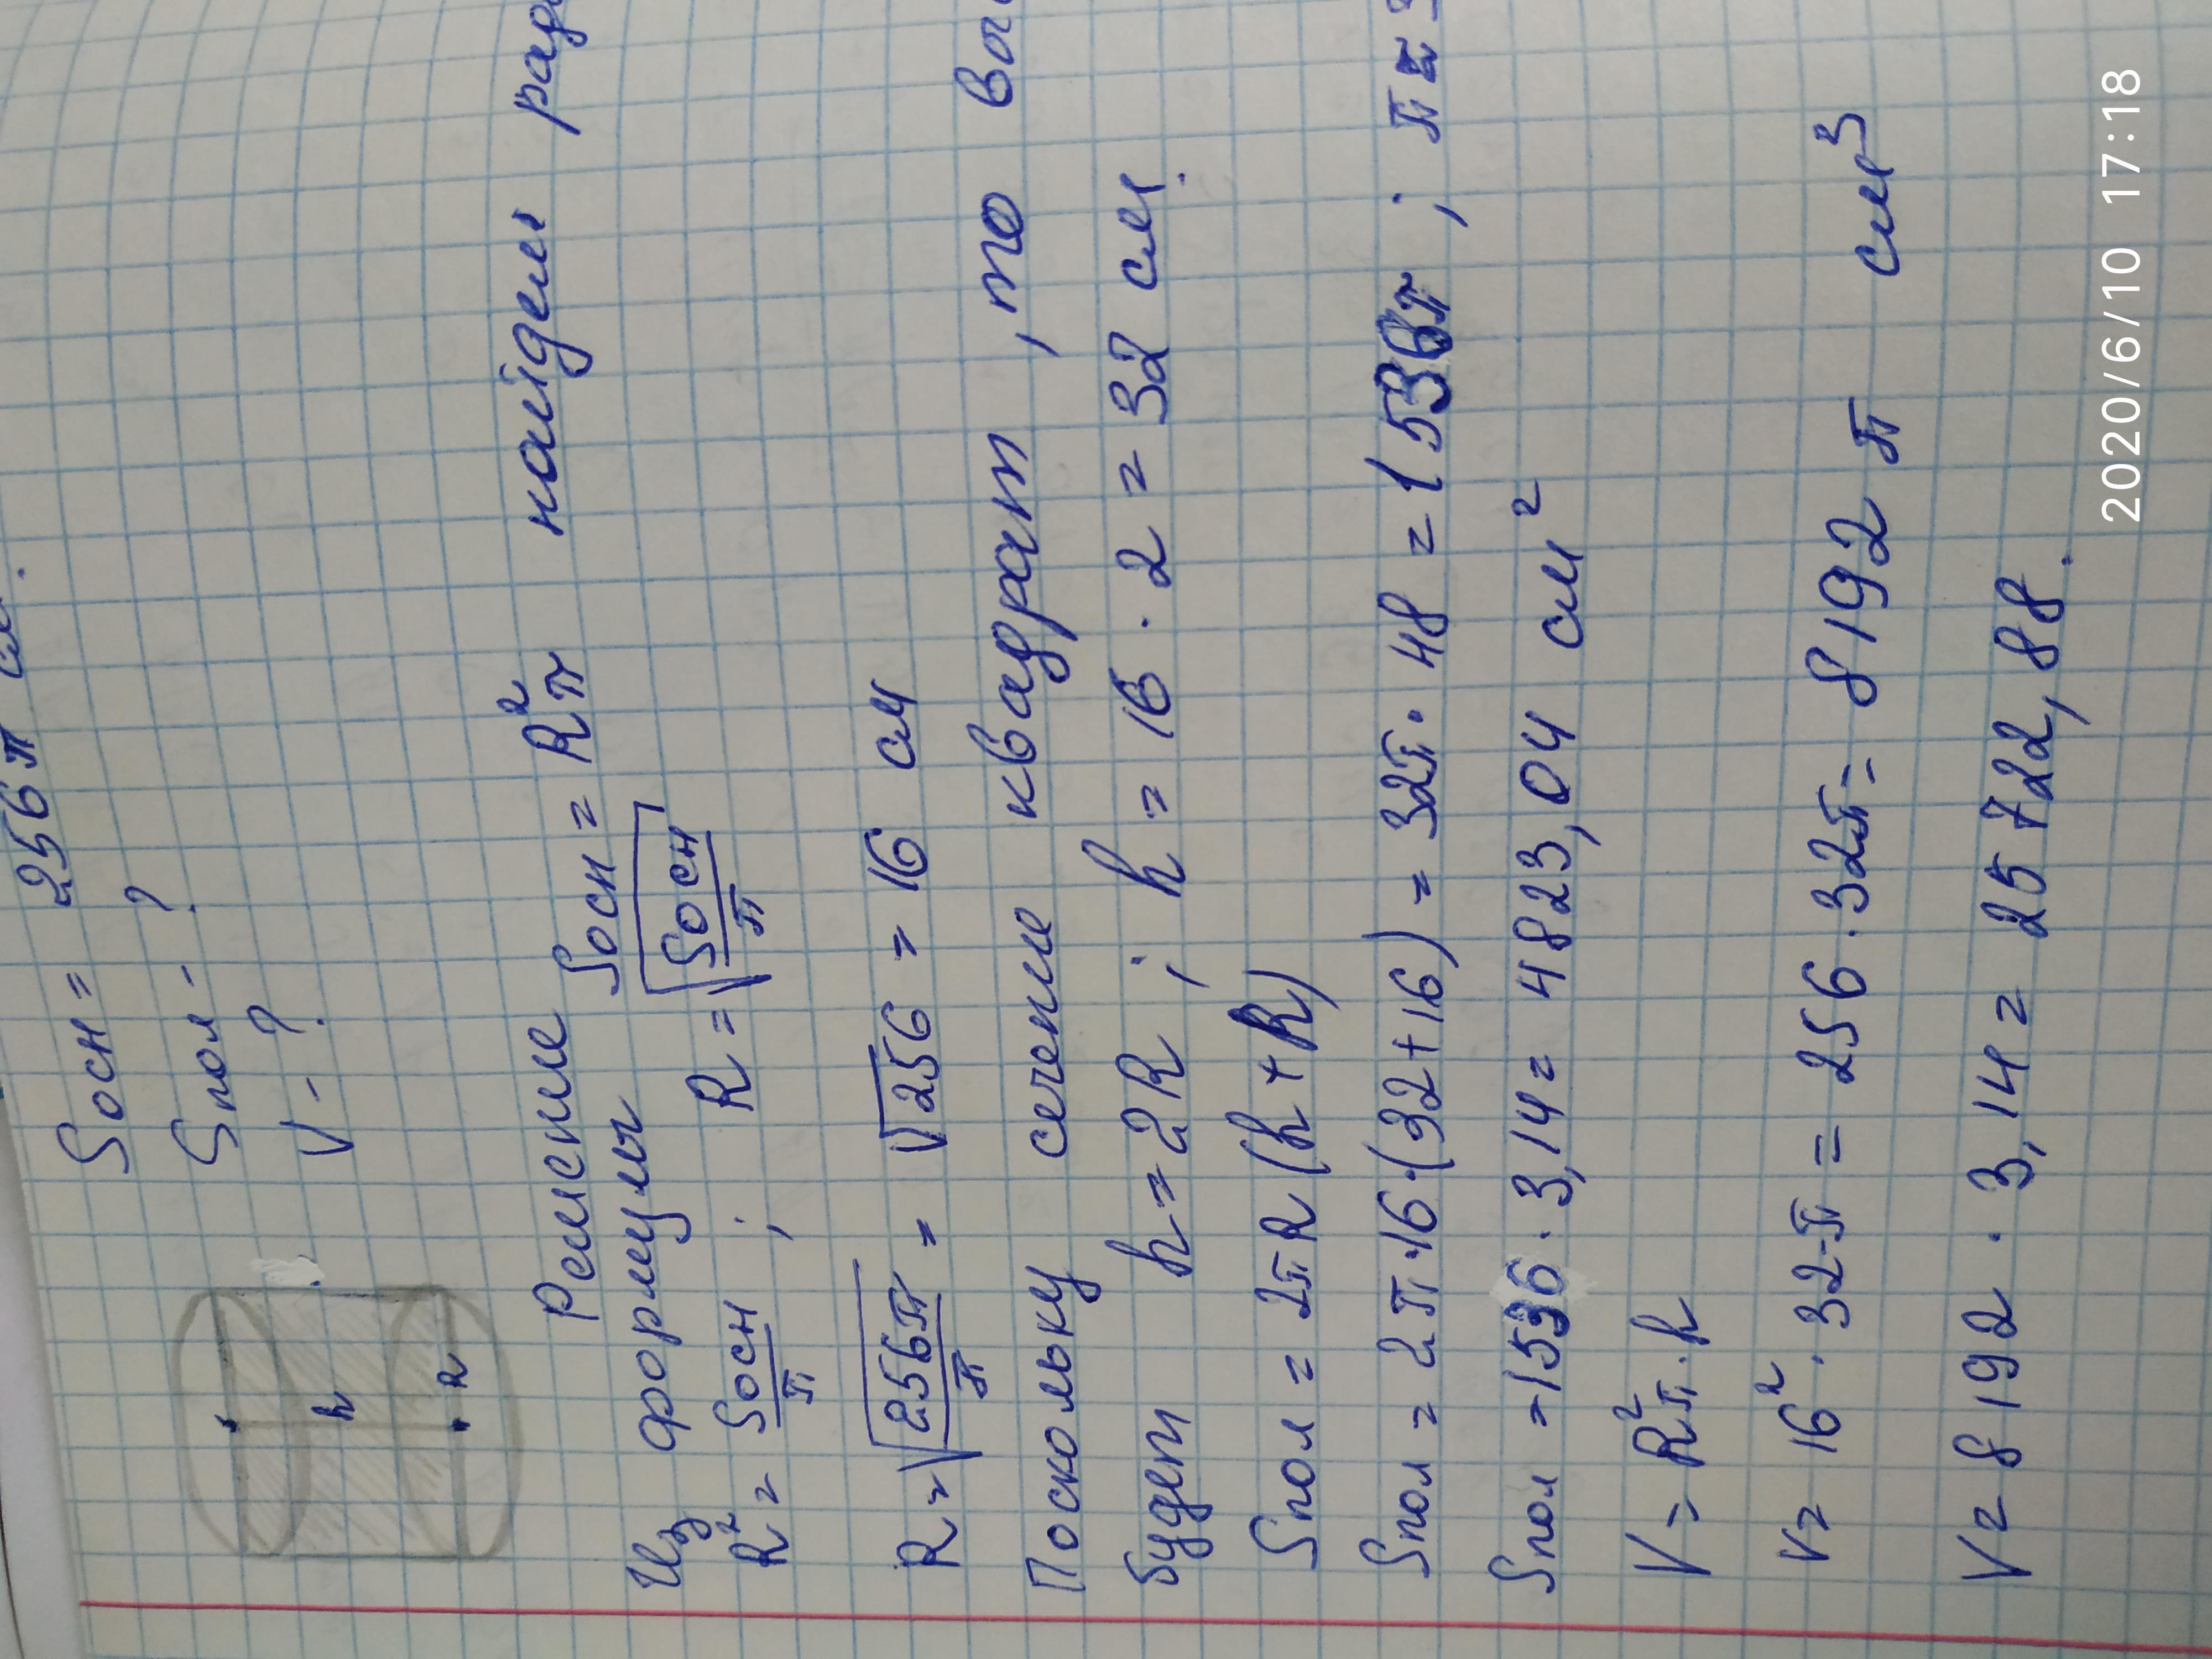 Sосн = 256π
Sпол - ?
V - ?
h
R
Решение
Из формулы Sосн = R²π найдем
R² = Sосн/π ; R = √(Sосн/π)
R = √(256π/π) = √256 = 16 см
Поскольку сечение квадрат, то
будет h = 2R ; h = 16 · 2 = 32 см.
Sпол = 2πR (h + R)
Sпол = 2π·16·(32+16) = 32π·48 = 1536π ; π
Sпол = 1536 · 3,14 = 4823,04 см²
V = R²π·h
V = 16² · 32·π = 256 · 32π = 8192 π см³
V = 8192 · 3,14 = 25722,88.
2020/6/10 17:18